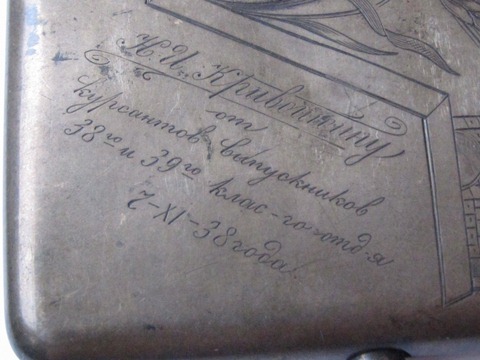 Н. И. Кривошеину
от
курсантов выпускников
38го и 39го клас-го отд-я
7-XI-38 года.